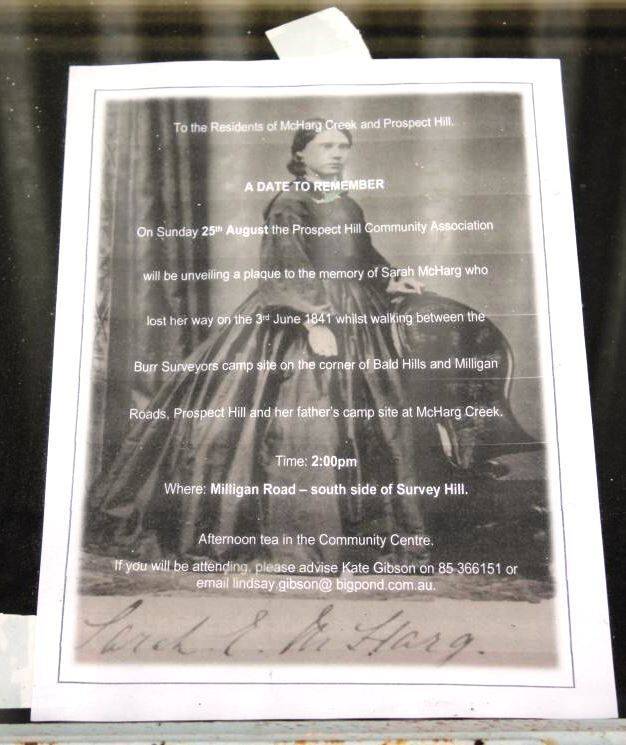 To the Residents of McHarg Creek and Prospect Hill.
A DATE TO REMEMBER
On Sunday 25th August the Prospect Hill Community Association
will be unveiling a plaque to the memory of Sarah McHarg who
lost her way on the 3rd June 1841 whilst walking between the
Burr Surveyors camp site on the corner of Bald Hills and Milligan
Roads, Prospect Hill and her father's camp site at McHarg Creek.
Time: 2:00pm
Where: Milligan Road – south side of Survey Hill.
Afternoon tea in the Community Centre.
If you will be attending, please advise Kate Gibson on 85 366151 or
email lindsay.gibson@ bigpond.com.au.
Sarah E. McHarg.